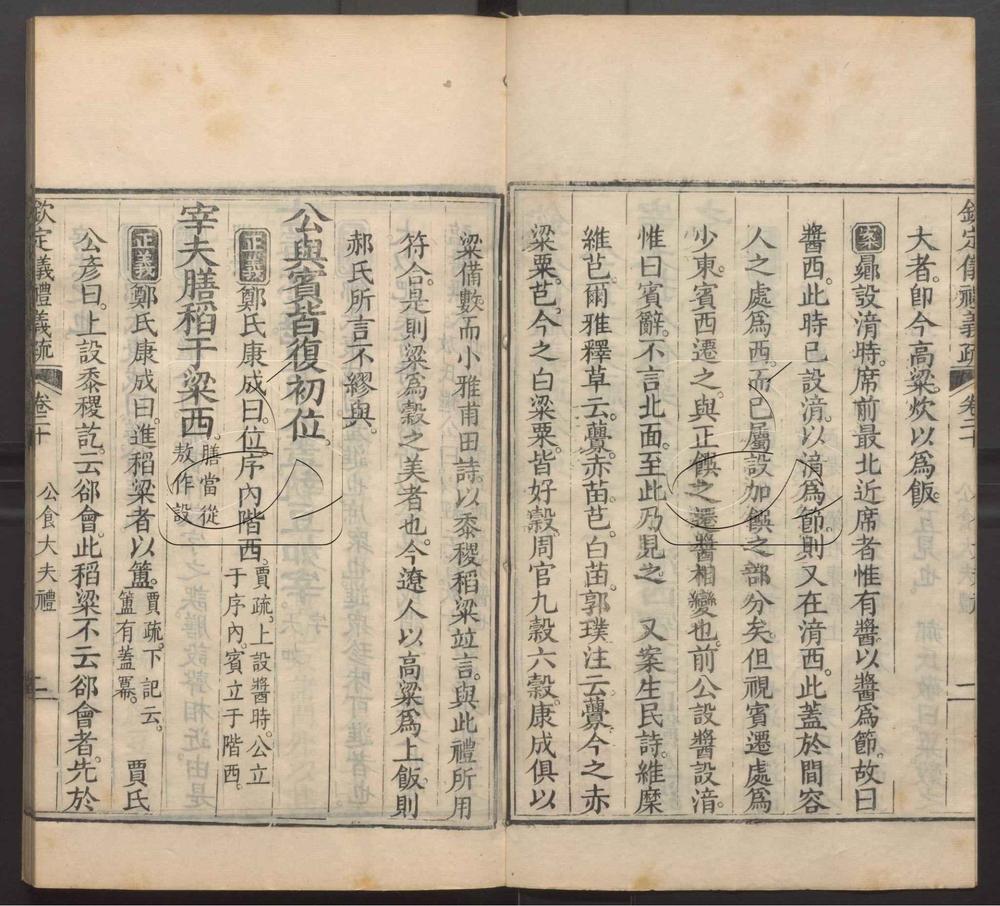 欽定儀禮義疏 卷二十
大者。即今高粱。炊以為飯。
案 曏設湆時。席前最北近席者惟有醬。以醬為節。故曰
醬西。此時已設湆。以湆為節。則又在湆西。此蓋於間容
人之處為西。而已屬設加饌之部分矣。但視賓遷處為
少東。賓西遷之。與正饌之遷醬相變也。前公設醬設湆。
惟曰賓辭。不言北面。至此乃見之。 又案生民詩。維穈
維芑。爾雅釋草云。虋。赤苗。芑。白苗。郭璞注云。虋。今之赤
粱粟。芑。今之白粱粟。皆好穀。周官九穀六穀。康成俱以
粱備數。而小雅甫田詩。以黍稷稻粱竝言。與此禮所用
符合。是則粱為穀之美者也。今遼人以高粱為上飯。則
郝氏所言不繆與。
公與賓皆復初位。
正義 鄭氏康成曰。位。序內階西。賈疏。上設醬時。公立于序內。賓立于階西。
宰夫膳稻于粱西。膳當從敖作設
正義 鄭氏康成曰。進稻粱者以簠。賈疏。下記云。簠有蓋冪。 賈氏
公彥曰。上設黍稷訖。云郤會。此稻粱不云郤會者。先於
欽定儀禮義疏 卷二十 公食大夫禮 二